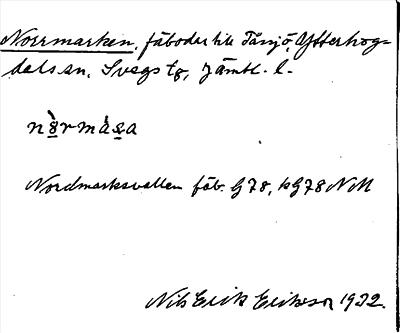 Norrmarken, fäboder till Tånsjö, Ytterhog-
dals sn, Svegs tg, Jämtl. l.
Nordmarksvallen fäb. G78, kG78 NM
Nils Erik Erikson 1922.